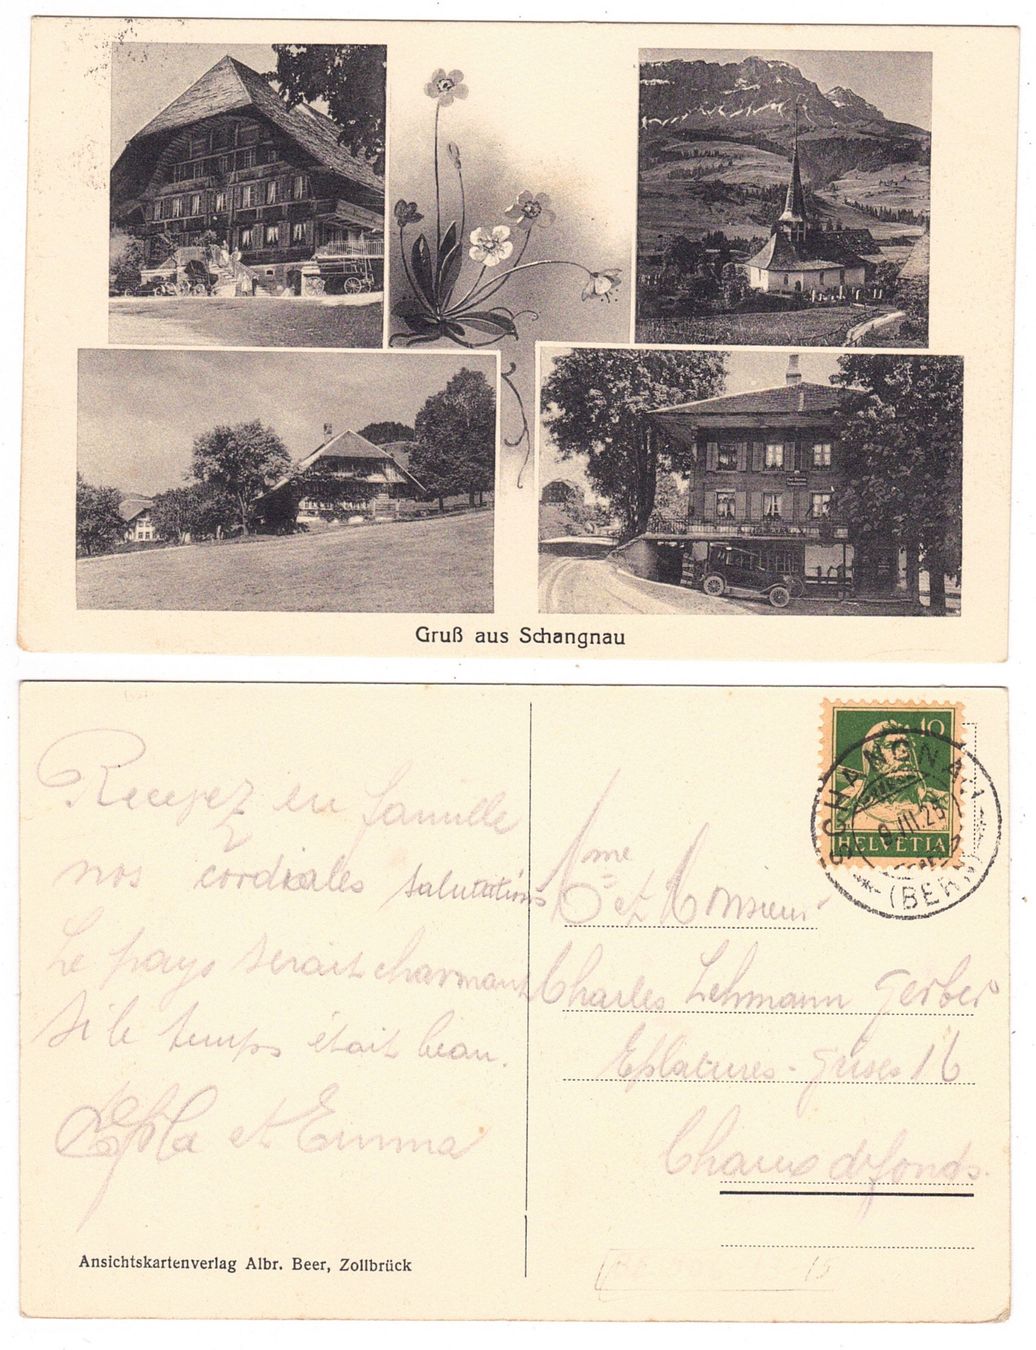 Gruß aus Schangnau
Recevez en famille
nos cordiales salutations
Le pays serait charmant
si le temps était beau.
et Emma
Ansichtskartenverlag Albr. Beer, Zollbrück
10
HELVETIA
SCHANGNAU
9.III.25
(BERN)
Mme et Monsieur
Charles Lehmann Gerber
Eplatures-Grises 16
Chaux de fonds.